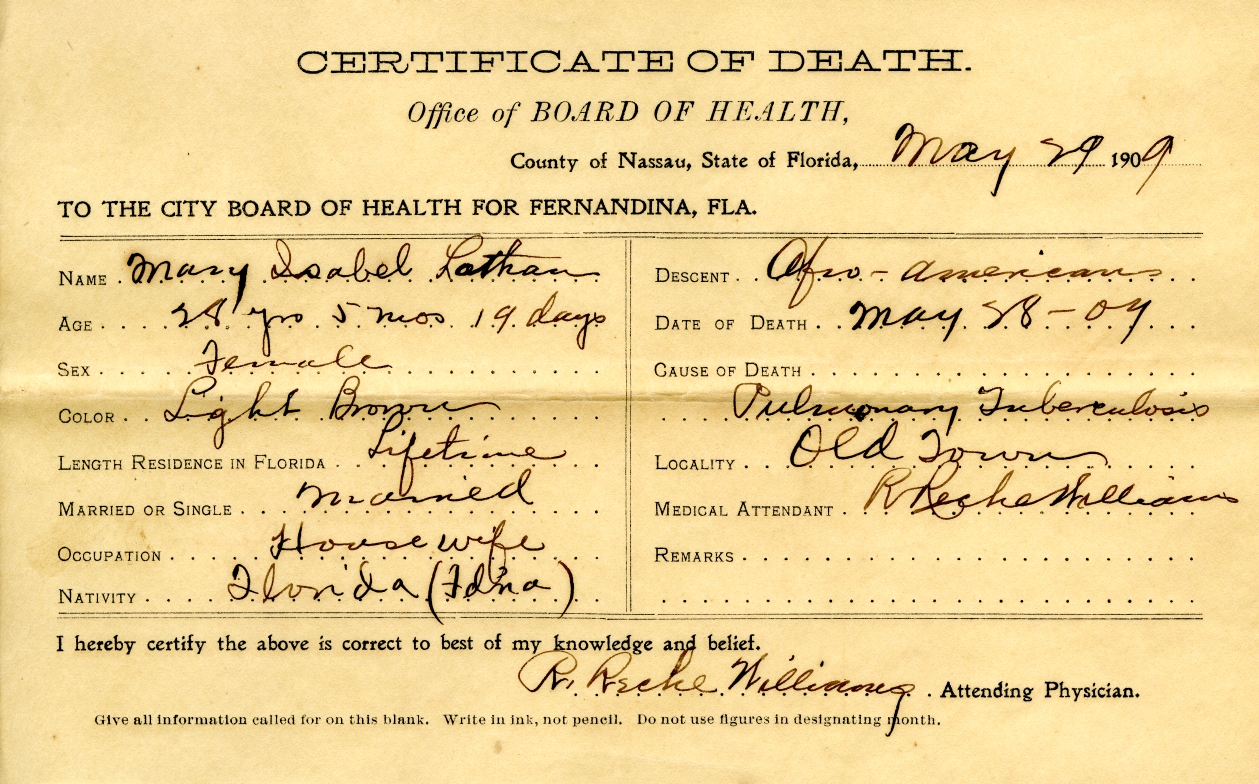 CERTIFICATE OF DEATH.
Office of BOARD OF HEALTH,
County of Nassau, State of Florida, May 29 1909
TO THE CITY BOARD OF HEALTH FOR FERNANDINA, FLA.
NAME Mary Isabel Lathan
AGE 28 yrs 5 mos 19 days
SEX Female
COLOR Light Brown
LENGTH RESIDENCE IN FLORIDA Lifetime
MARRIED OR SINGLE Married
OCCUPATION Housewife
NATIVITY Florida (Fdna)
DESCENT Afro-American
DATE OF DEATH May 28-09
CAUSE OF DEATH
Pulmonary Tuberculosis
LOCALITY Old Town
MEDICAL ATTENDANT R Williams
REMARKS
I hereby certify the above is correct to best of my knowledge and belief.
R. Williams Attending Physician.
Give all information called for on this blank. Write in ink, not pencil. Do not use figures in designating month.